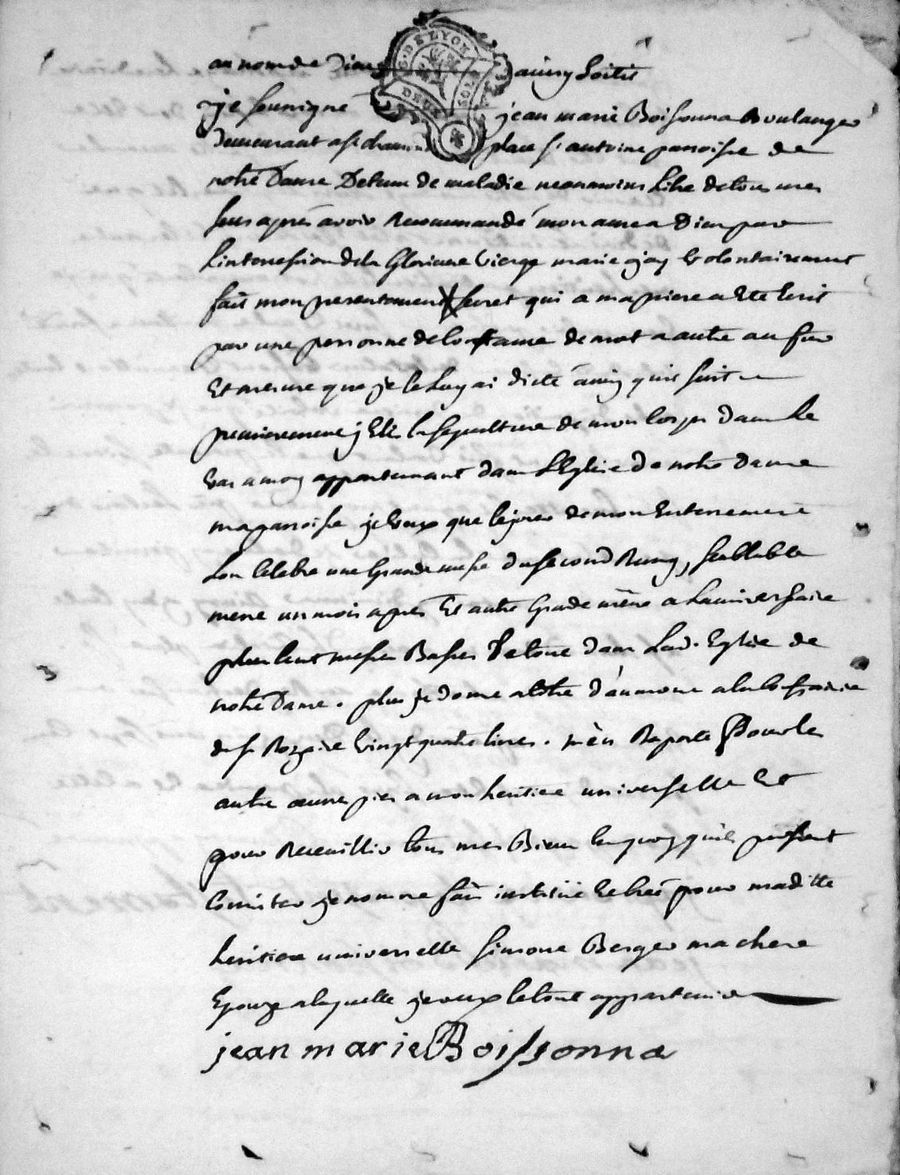 au nom de Dieu ainsy soitil
G. DE LYON
DEUX SOLS
Je sousigné jean marie Boissonna Boulanger
demeurant a st chamon place st antoine paroisse de
notre Dame Detenu de maladie neanmoins libre de tous mes
sens aprés avoir Recommandé mon ame a Dieu par
L'intersession de la Glorieuse Vierge marie jay volontairement
fait mon presentament secret qui a ma priere a Eté Ecrit
par une personne de confiance de mot a autre au fur
Et mesure que je le luy ai dicté ainsy quil suit
premierement j'Elis la sepulture de mon corps dans le
vas a moy appartenant dans L'Eglise de notre dame
ma paroisse je veux que le jour de mon Enterrement
Lon celebre une Grande messe du second Rang, semblable
messe un mois aprés Et autre Grade messe a Lanniversaire
plus cent messes Basses Le tout dans Lad. Eglise de
notre Dame. plus je donne a titre d'aumone a la confrairie
du st Rozaire vingt quatre livres. m'en Raporte Pour les
autre œuvre pies a mon heritiere universelle Et
pour Recueillir tous mes Biens En quoy quils puissent
Consister je nomme fais institüe pour maditte
heritiere universelle simone Berger ma chere
Epouze a laquelle je veux le tout appartenir
jean marie Boissonna